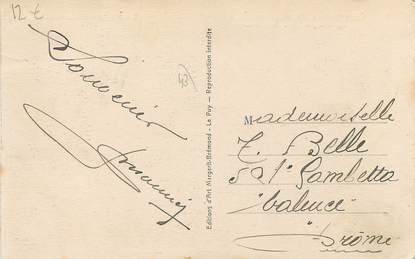 12 €
Souvenir
Editions d'Art Margerit-Bremond - Le Puy — Reproduction Interdite
Mademoiselle
Belle
Gambetta
Valence
Drôme